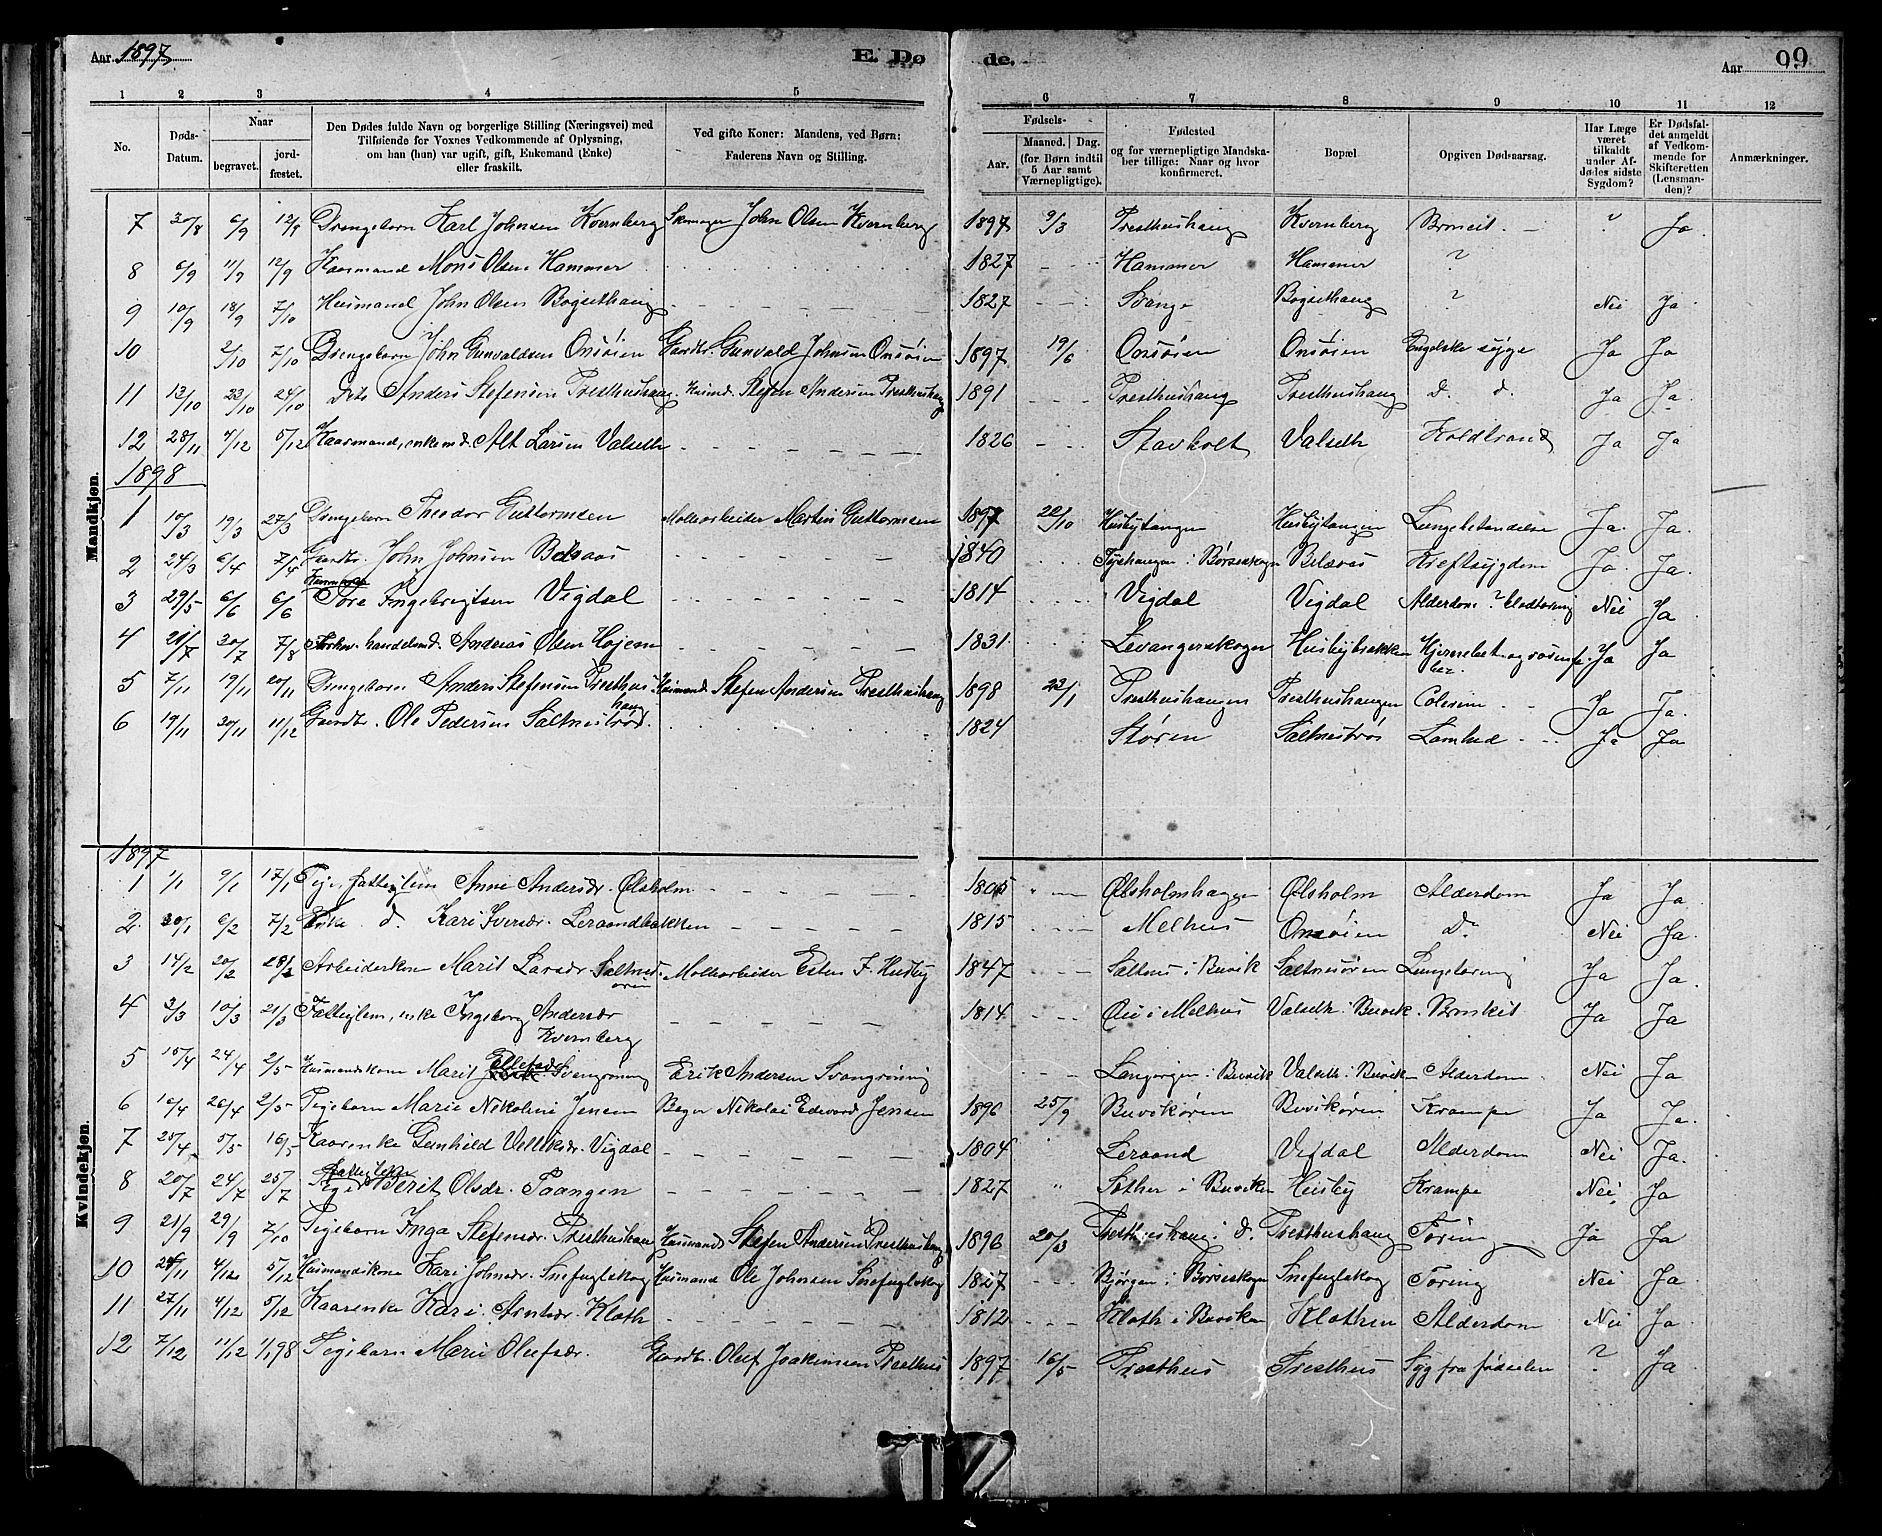 Aar 1897
E. Dø
de.
Aar 99
1 2 3 4 5 6 7 8 9 10 11 12
No.
Døds-Datum.
Naar
begravet.
jord-fæstet.
Den Dødes fulde Navn og borgerlige Stilling (Næringsvei) med
Tilføiende for Voxnes Vedkommende af Oplysning,
om han (hun) var ugift, gift, Enkemand (Enke)
eller fraskilt.
Ved gifte Koner: Mandens, ved Børn:
Faderens Navn og Stilling.
Fødsels-
Aar.
Maaned. Dag.
(for Børn indtil
5 Aar samt
Værnepligtige).
Fødested
og for værnepligtige Mandska-
ber tillige: Naar og hvor
konfirmeret.
Bopæl.
Opgiven Dødsaarsag.
Har Læge
været
tilkaldt
under Af-
dødes sidste
Sygdom?
Er Dødsfal-
det anmeldt
af Vedkom-
mende for
Skifteretten
(Lensman-
den)?
Anmærkninger.
Mandkjøn.
7 30/8 6/9 12/9 Drengebarn Karl Johnsen Kvernberg Skomager John Olsen Kvernberg 1897 9/3 Presthushaug Kvernberg ? Ja
8 6/9 11/9 12/9 Kaarmand Mons Olsen Hammer 1827 Hammer Hammer ?
9 10/9 18/9 7/10 Husmand John Olsen Bogsethaug 1827 Svange Bogsethaug ? Nei Ja
10 2/10 7/10 Drengebarn John Gunvaldsen Onsøien Gaardbr. Gunvald Johnsen Onsøien 1897 19/6 Onsøien Onsøien Engelske syge Ja Ja
11 13/10 23/10 24/10 Dito Anders Stefensen Presthushaug Husmd. Stefen Andersen Presthushaug 1891 Presthushaug Presthushaug d. d. Ja Ja
12 28/11 4/12 5/12 Kaarmand, enkemd. Alt Larsen Valseth 1826 Stavholt Valseth Koldbrand Ja Ja
1898
1 10/3 19/3 27/3 Drengebarn Theodor Guttormsen Mollearbeider Martin Guttormsen 1897 20/10 Husbytangen Husbytangen Lungebetændelse Ja. Ja.
2 24/3 6/4 7/4 Gaardbr. John Johnsen Belsaas 1840 i Børseskogn Belsaas Kreftsygdom Ja. Ja.
3 29/5 6/6 6/6 Tore Ingebrigtsen Vigdal 1814 Vigdal Vigdal Alderdom ? Nei Ja
4 21/7 30/7 7/8 handelsmd. Andreas Olsen Hojem 1831. Levangerskogn Husbybakken Ja Ja
5 7/11 19/11 20/11 Drengebarn Anders Stefensen Presthus- Husmand. Stefen Andersen Presthushaug 1898 23/1 Presthushaugen Presthushaugen Colerine Ja Ja.
haug
6 19/11 30/11 11/12 Gaardbr. Ole Pedersen Saltnestrøs. 1824 Støren Saltnestrøs Lamhed Ja Ja
Kvindekjøn.
1897
1 1/1 9/1 17/1 Pige, fattiglem Anne Andersdr. Ølsholm 1805 Ølsholmhagen Ølsholm Alderdom Ja Ja.
2 30/1 6/2 7/2 Enke d. Kari Iversdr. Leraandbakken 1815 Melhus Onsøien D. Nei Ja.
3 14/2 20/2 28/2 Arbeiderkone Marit Larsdr. Saltnes- Mollearbeider Esten F. Husby 1847 Saltnes i Buvik Saltnesøren Lungetæring Ja Ja.
øren
4 3/3 10/3 21/3 Fattiglem, enke Ingeborg Andersdr 1814 Øie i Melhus Valseth i Buvik. Bronkit Ja Ja
Kvernberg
5 15/4 24/4 2/5 Husmandskone Marit Ellefsdr Svangrøning Erik Andersen Svangrøning Langørgen i Buvik Valseth i Buviken Alderdom. Nei Ja
6 16/4 26/4 2/5 Pigebarn Marie Nikoline Jensen Bager Nikolai Edevard Jensen 1896 25/9 Buvikøren Buvikøren Krampe Ja Ja.
7 25/4 5/5 16/5 Kaarenke Gunhild Vellikdr. Vigdal 1804 Leraand Vigdal Alderdom Nei Ja.
8 20/7 24/7 25/7 Fattiglem Pige Berit Olsdr. Saangen 1827 Sother i Buviken Husby Krampe Nei Ja
9 21/9 29/9 7/10 Pigebarn Inga Stefensdr. Presthushaug Husmand Stefen Andersen Presthushaug 1896 20/3 Presthushaug i d. Presthushaug Tæring Ja Ja
10 28/11 4/12 5/12 Husmandskone Kari Johnsdr. Snefuglskog Husmand Ole Johnsen Snefuglskog 1827 Bjørgen i Børseskogn Snefuglskog Tæring Nei Ja
11 27/11 4/12 5/12 Kaarenke Kari Arntsdr. Kloth 1812 Kloth i Buviken Klothen Alderdom Nei Ja.
12 7/12 11/12 1/1 98 Pigebarn Marie Olufsdr. Gaardbr. Oluf Joakimsen Presthus 1897 16/5 Presthus Presthus Syg fra fødselen ? Ja